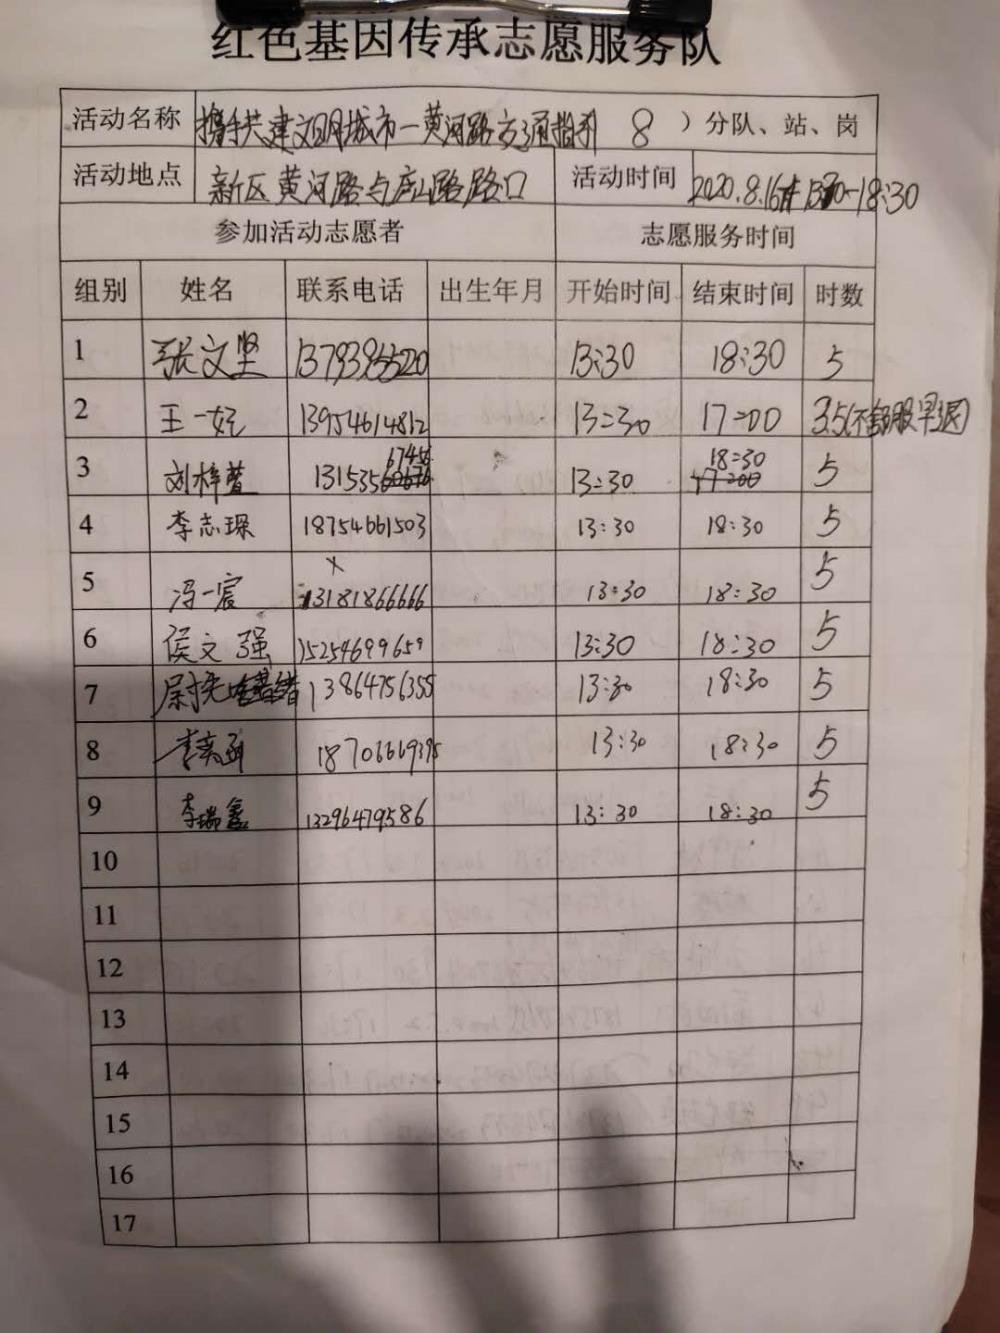 红色基因传承志愿服务队
活动名称 携手共建文明城市—黄河路交通指引 8 ）分队、站、岗
活动地点 新区黄河路与庐山路路口 活动时间 2020.8.16 13:30-18:30
参加活动志愿者 志愿服务时间
组别 姓名 联系电话 出生年月 开始时间 结束时间 时数
1 张文坚 13:30 18:30 5
2 王一妃 13954614812 13:30 17:00 3.5(不舒服早退)
3 刘梓萱 13:30 18:30 5
4 李志琛 18754661503 13:30 18:30 5
5 冯一宸 13181866666 13:30 18:30 5
6 侯文强 15254699659 13:30 18:30 5
7 13864756355 13:30 18:30 5
8 李奕函 13:30 18:30 5
9 李瑞鑫 13296479586 13:30 18:30 5
10
11
12
13
14
15
16
17